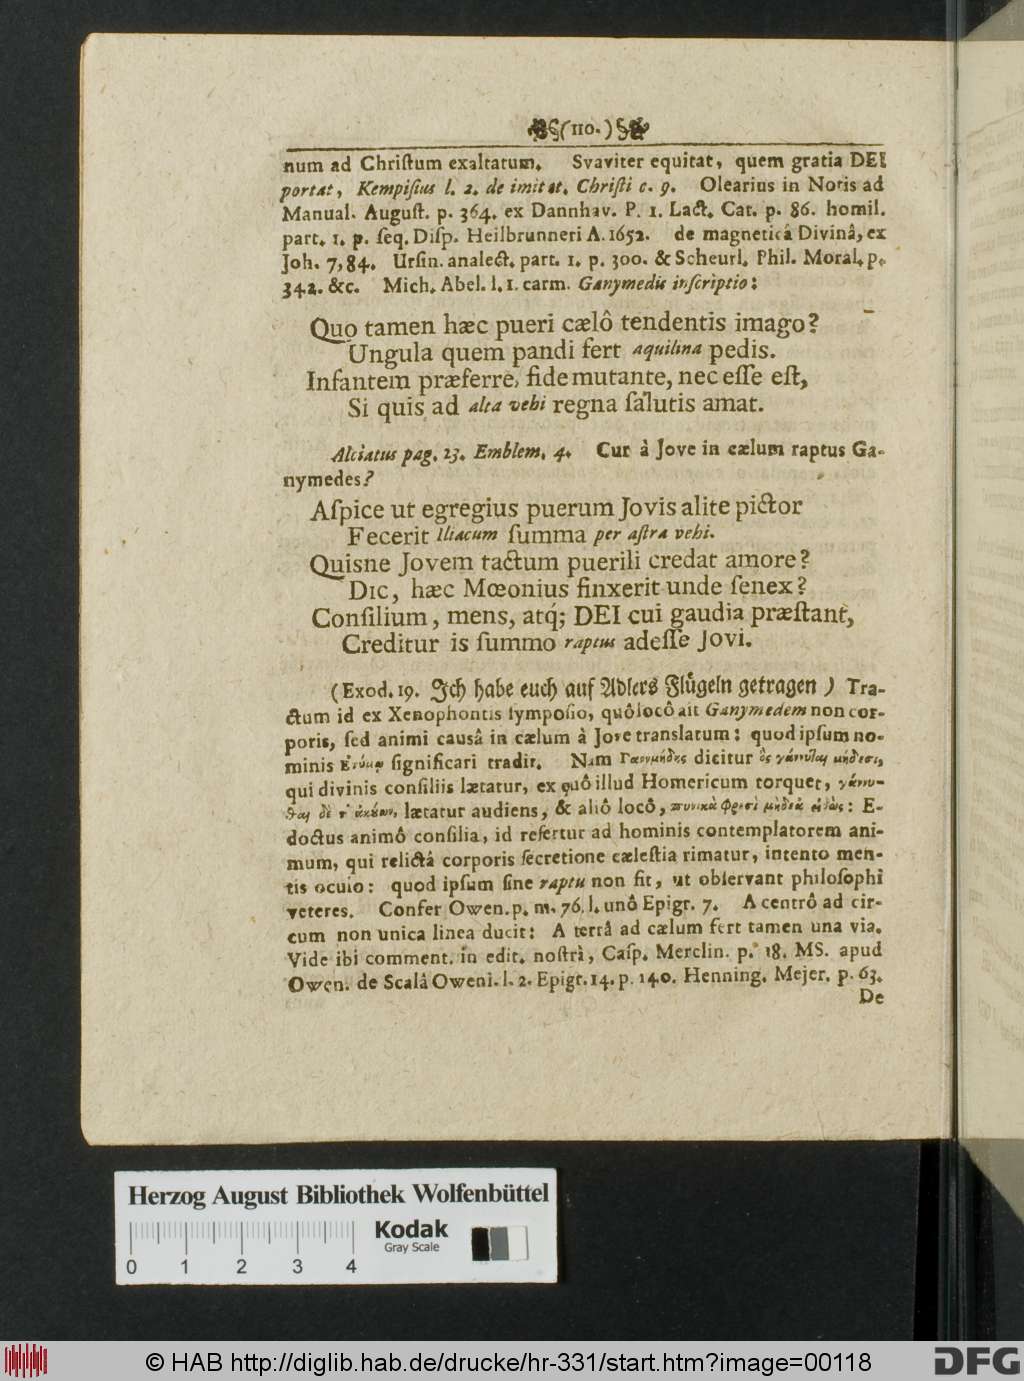 (110.)
num ad Chriſtum exaltatum. Svaviter equitat, quem gratia DEI
portat, Kempiſius l. 2. de imitat. Chriſti c. 9. Olearius in Notis ad
Manual. Auguſt. p. 364. ex Dannhav. P. 1. Lact. Cat. p. 86. homil.
part. 1. p. ſeq. Diſp. Heilbrunneri A. 1652. de magneticâ Divinâ, ex
Joh. 7, 84. Urſin. analect. part. 1. p. 300. & Scheurl. Phil. Moral. p.
342. &c. Mich. Abel. l. 1. carm. Ganymedis inſcriptio:
Quo tamen hæc pueri cælô tendentis imago?
Ungula quem pandi fert aquilina pedis.
Infantem præferre, fide mutante, nec eſſe eſt,
Si quis ad alta vehi regna ſalutis amat.
Alciatus pag. 23. Emblem. 4. Cur à Jove in cælum raptus Ga-
nymedes?
Aſpice ut egregius puerum Jovis alite pictor
Fecerit Iliacum ſumma per aſtra vehi.
Quisne Jovem tactum puerili credat amore?
Dic, hæc Mœonius finxerit unde ſenex?
Conſilium, mens, atq́; DEI cui gaudia præſtant,
Creditur is ſummo raptus adeſſe Jovi.
(Exod. 19. Ich habe euch auf Adlers Flügeln getragen) Tra-
ctum id ex Xenophontis ſympoſio, quôlocô ait Ganymedem non cor-
poris, ſed animi causâ in cælum à Jove translatum: quod ipſum no-
minis ſignificari tradit. Nam dicitur ὃς
qui divinis conſiliis lætatur, ex quô illud Homericum torquet, γάννυ-
lætatur audiens, & aliô locô, : E-
doctus animô conſilia, id refertur ad hominis contemplatorem ani-
mum, qui relictâ corporis ſecretione cæleſtia rimatur, intento men-
tis oculo: quod ipſum ſine raptu non fit, ut obſervant philoſophi
veteres. Confer Owen. p. m. 76. l. unô Epigr. 7. A centrô ad cir-
cum non unica linea ducit: A terrâ ad cælum fert tamen una via.
Vide ibi comment. in edit. noſtri, Caſp. Merclin. p. 18. MS. apud
Owen. de Scalâ Oweni. l. 2. Epigr. 14. p. 140. Henning. Mejer. p. 63.
De
Herzog August Bibliothek Wolfenbüttel
Kodak
Gray Scale
0 1 2 3 4
© HAB http://diglib.hab.de/drucke/hr-331/start.htm?image=00118
DFG